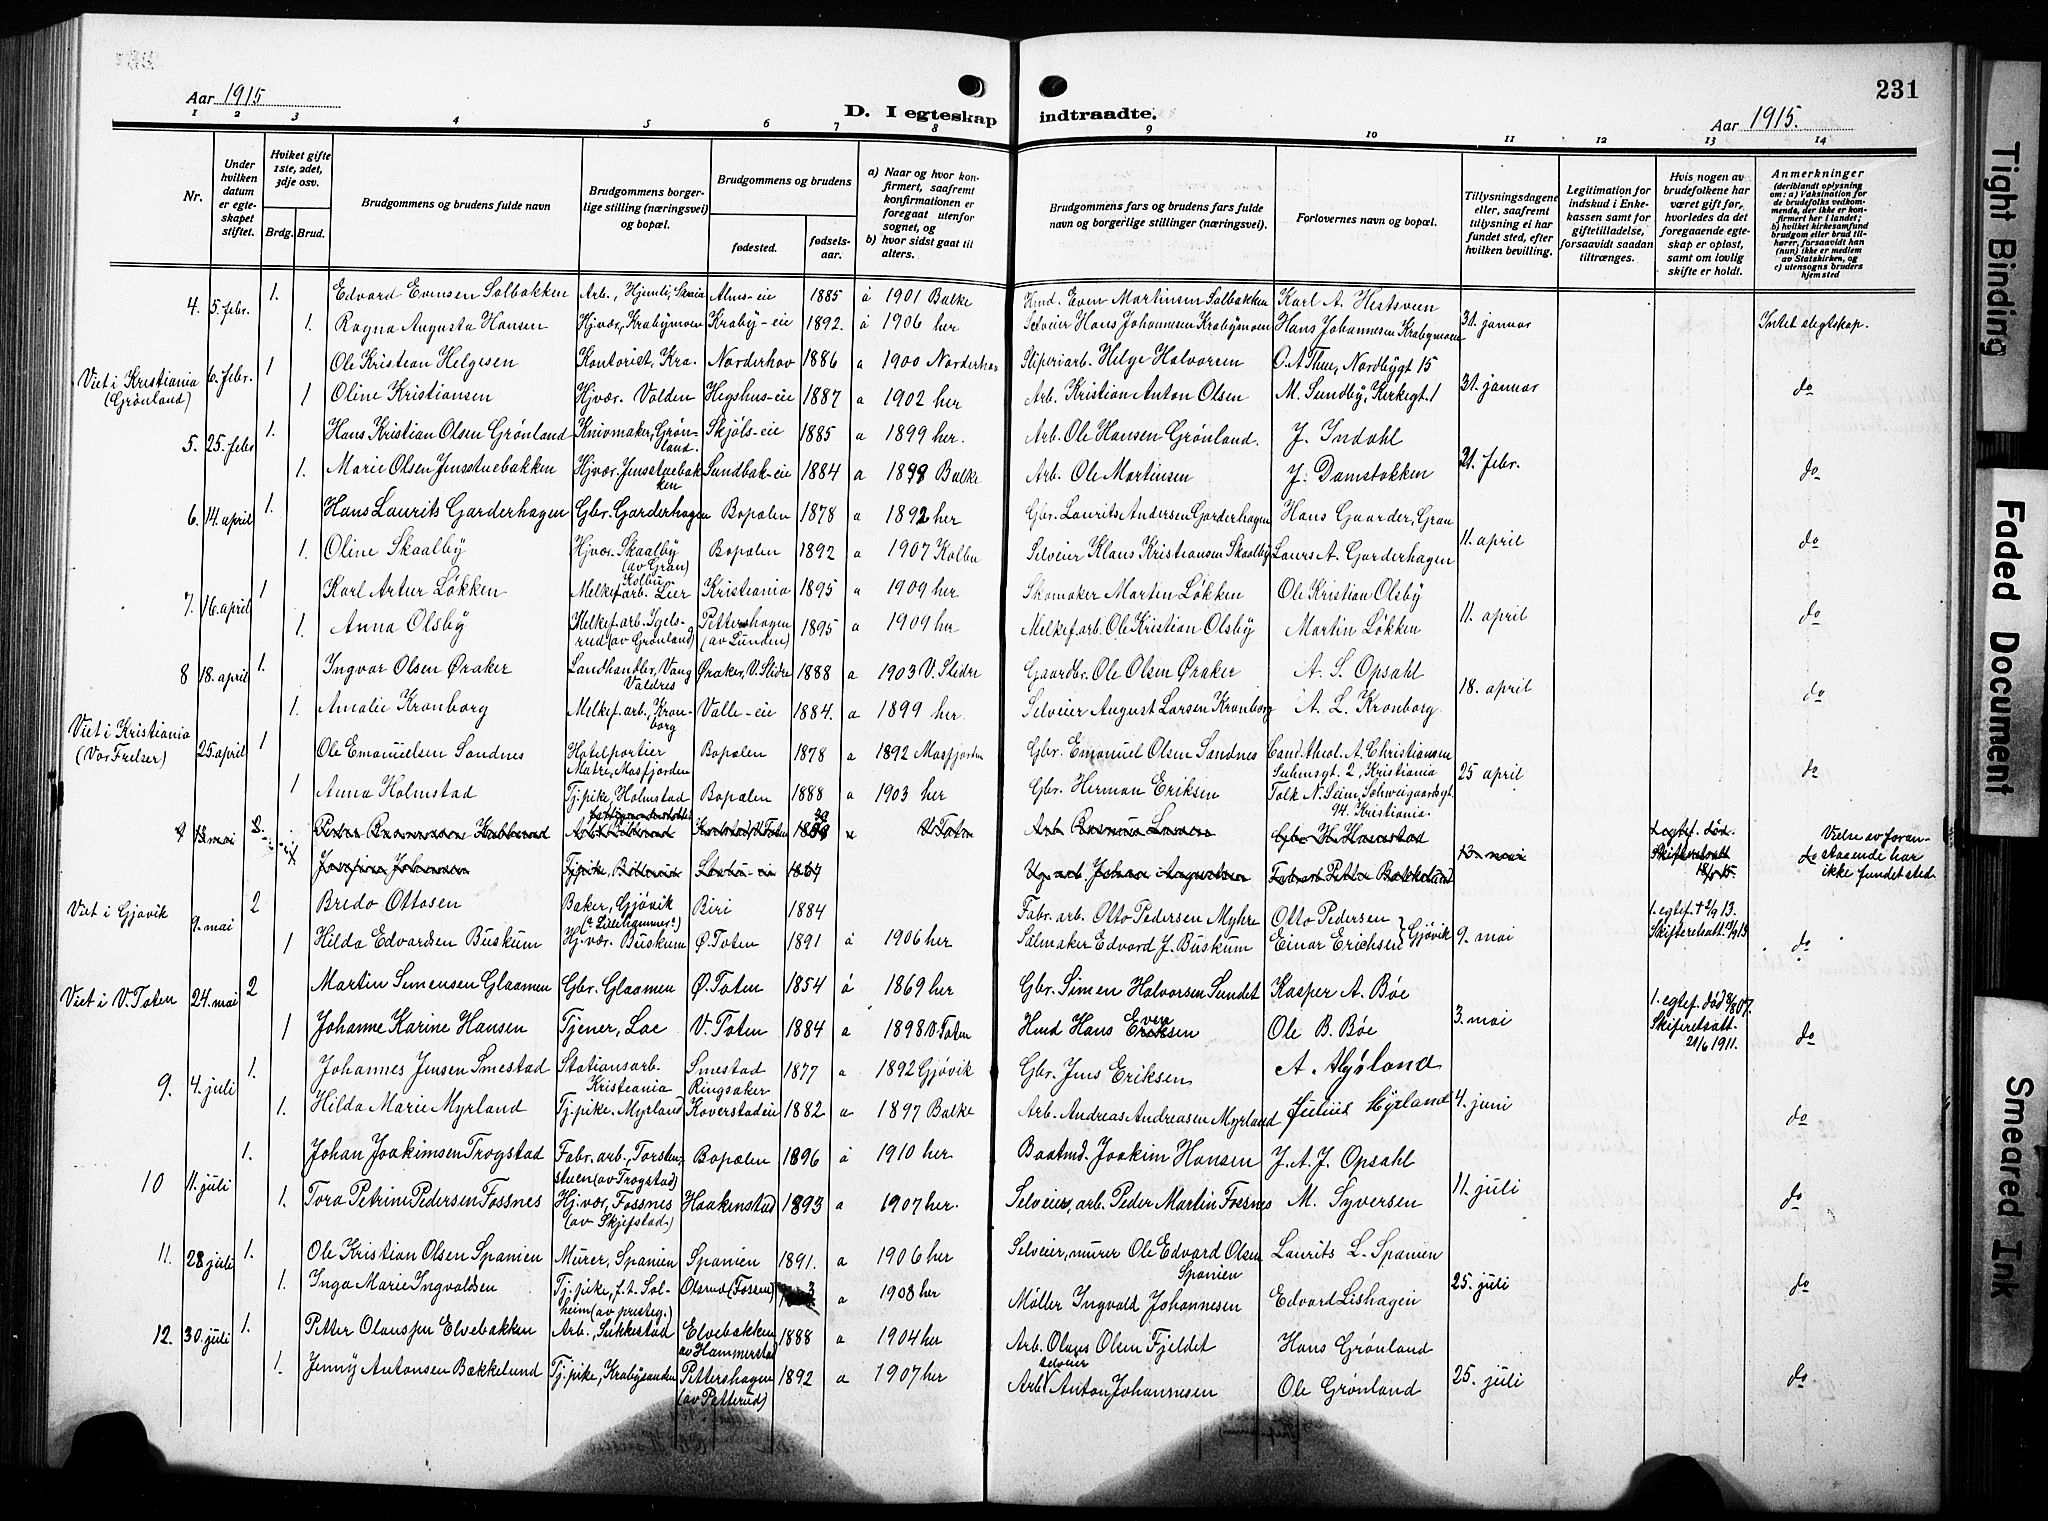 231
Aar 1915
D. I egteskap indtraadte.
Aar 1915.
1 2 3 4 5 6 7 8 9 10 11 12 13 14
Nr.
Under hvilken datum er egteskapet stiftet.
Hviket gifte 1ste, 2det, 3dje osv.
Brdg. Brud.
Brudgommens og brudens fulde navn
Brudgommens borgerlige stilling (næringsvei) og bopæl.
Brudgommens og brudens
fødested.
fødselsaar.
a) Naar og hvor konfirmert, saafremt konfirmationen er foregaat utenfor sognet, og
b) hvor sidst gaat til alters.
Brudgommens fars og brudens fars fulde navn og borgerlige stillinger (næringsvei).
Forlovernes navn og bopæl.
Tillysningsdagene eller, saafremt tillysning ei har fundet sted, efter hvilken bevilling.
Legitimation for indskud i Enkekassen samt for giftetilladelse, forsaavidt saadan tiltrænges.
Hvis nogen av brudefolkene har været gift før, hvorledes da det foregaaende egteskap er opløst, samt om lovlig skifte er holdt.
Anmerkninger
(deriblandt oplysning om: a) Vaksination for de brudefolks vedkommende, der ikke er konfirmert her i landet; b) hvilket kirkesamfund brudgom eller brud tilhører, forsaavidt han (hun) ikke er medlem av Statskirken, og c) utensogns bruders hjemsted
4. 5. febr. 1. Edvard Evensen Solbakken Arb., Hjemli, Alms-eie 1885 a 1901 Balke Hmd. Even Martinsen Solbakken Karl A. Hestsveen
1. Ragna Augusta Hansen Hjvær, Krabymoen Kraby-eie 1892. a 1906 her Selveier Hans Johannesen Krabymoen Hans Johannesen Krabymoen 31. januar Intet slegtskap.
Viet i Kristiania (Grønland) 6. febr. 1 Ole Kristian Helgesen Kontorist, Kra. Norderhov 1886 a 1900 Norderhov Sliperiarb. Helge Halvorsen O. A Thue, Nordbygt 15
1 Oline Kristiansen Hjvær. Volden Hegshus-eie 1887 a 1902 her Arb. Kristian Anton Olsen M. Sundby, Kirkegt. 1 31. januar do
5. 25. febr 1. Hans Kristian Olsen Grønland Knivmaker, Grønland. Skjøls-eie 1885 a 1899 her. Arb. Ole Hansen Grønland. J. Indahl
1. Marie Olsen Jensstuebakken Hjvær. Jensstuebakken Sundbak-eie 1884 a 1899 Balke Arb. Ole Martinsen J. Damstokken 21. febr. do
6. 14. april 1. Hans Laurits Garderhagen Gbr. Garderhagen Bopælen 1878 a 1892 her Gbr. Laurits Andersen Garderhagen Hans Gaarder, Gran
1. Oline Skaalby Hjvær. Skaalby (av Gran) Kolbu Bopælen 1892 a 1907 Kolbu Selveier Klaus Kristiansen Skaalby Laurs A. Garderhagen 11. april do
7. 16. april 1 Karl Artur Løkken Melkef. arb. Lier Kristiania 1895 a 1909 her Skomaker Martin Løkken Ole Kristian Olsby
1. Anna Olsby Melkef. arb. Igelsrud (av Grønland) Pettershagen (av Lunden) 1895 a 1909 her Melkef. arb. Ole Kristian Olsby Martin Løkken 11. april do
8 18. april 1. Ingvar Olsen Øraker Landhandler, Vang Valdres Øraker, V. Slidre 1888 a 1903 V. Slidre Gaardbr. Ole Olsen Øraker A. S. Opsahl
1. Amalie Kronborg Melkef. arb., Kronborg Valle-eie 1884. a 1899 her. Selveier August Larsen Kronborg A. L. Kronborg 18. april do
Viet i Kristiania (Vor Frelser) 25. april 1 Ole Emanuelsen Sandnes Hotelportier Matre, Masfjorden Bopælen 1878 a 1892 Masfjorden Gbr. Emanuel Olsen Sandnes Cand. theol. A. Christiansen Suhmsgt. 2, Kristiania
1 Anna Holmstad Tj. pike, Holmstad Bopælen 1888 a 1903 her Gbr. Herman Eriksen Tolk N. Seim, Schweigaardsgt. 94. Kristiania. 25 april do
9 13. mai V. Toten 1. egtef. død. Skifteretsatt 13. mai do Vielse av foranstaaende har ikke fundet sted.
Viet i Gjøvik 9. mai 2 Bredo Ottosen Baker, Gjøvik (Lillehammer) Biri 1884 Fabr. arb. Otto Pedersen Myhre Otto Pedersen 1. egtef. † 2/9 13.
1 Hilda Edvardsen Buskum Hj. vær. Buskum Ø. Toten 1891 a 1906 her Salmaker Edvard J. Buskum Einar Erichsen } Gjøvik 9. mai Skifteretsatt. do
Viet i V. Toten 24. mai 2 Martin Simensen Glaamen Gbr. Glaamen Ø. Toten 1854 a 1869 her Gbr. Simen Halvorsen Sundet Kasper A. Bøe 1. egtef. død 8/8 07.
1 Johanne Karine Hansen Tjener, Loe V. Toten 1884 a 1898 V. Toten Hmd Hans Evensen Ole B. Bøe 3. mai Skifteretsatt. 21/6 1911. do
9. 4. juli 1. Johannes Jensen Smestad Stationsarb. Kristiania Smestad Ringsaker 1877 a 1892 Gjøvik Gbr. Jens Eriksen
1. Hilda Marie Myrland Tj. pike. Myrland Koverstadeie 1882 a 1897 Balke Arb. Andreas Andreasen Myrland Julius Myrland 4. juni do
10 11. juli 1. Johan Joakimsen Trogstad Fabr. arb., Torstenstuen (av Trogstad) Bopælen 1896 a 1910 her Baatmd. Joakim Hansen J. A. J. Opsahl
1. Tora Petrine Pedersen Fossnes Hj. vær, Fossnes (av Skjefstad) Haakenstad 1893 a 1907 her. Selveier, arb. Peder Martin Fossnes M. Syversen 11. juli do
11. 28. juli 1. Ole Kristian Olsen Spanien Murer, Spanien Spanien 1891. a 1906 her Selveier, murer Ole Edvard Olsen Spanien Laurits L. Spanien
1. Inga Marie Ingvaldsen Tj. pike, f. t. Solheim (av presteg.) Olsrud (Fossen) a 1908 her Møller Ingvald Johannesen Edvard Lishagen 25. juli do
12. 30. juli 1. Petter Olausen Elvebakken Arb. Sukkestad Elvebakken av Hammerstad 1888 a 1904 her Arb. Olaus Olsen Fjeldet Hans Grønland
1. Jenny Antonsen Bakkelund Tj. pike, Krabysanden Pettershagen (av Petterud) 1892 a 1907 her Arb. selveier Anton Johannesen Ole Grønland 25. juli do
Tight Binding
Faded Document
Smeared Ink